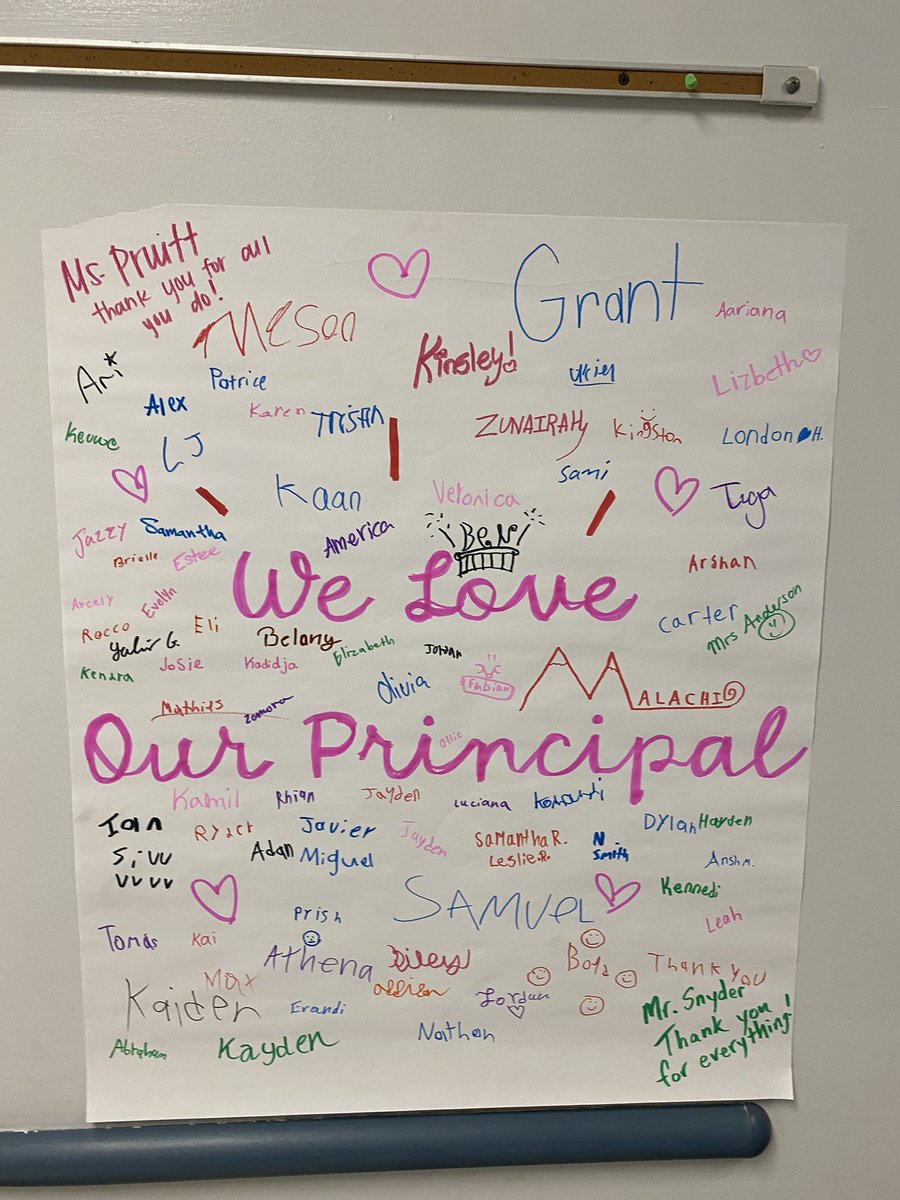 Ms. Pruitt
thank you for all
you do!
Grant
Aariana
Meson
Kinsley!
Ari
Patrice
Uriel
Lizbeth
Alex
Karen
Tristan
ZUNAIRAH
Kingston
London H.
LJ
Sami
Kaan
Veronica
Jazzy
Samantha
America
BeN
Brielle
Estee
Arshan
We Love
Arcely
Evelyn
Carter
Mrs Anderson
Rocco
Yahir G.
Eli
Belany
Elizabeth
Kenara
Josie
Kadidja
Olivia
Fabian
MALACHI
Mathies
Zamora
Our Principal
Ollie
Kamil
Rhian
Jayden
Luciana
Ian
Javier
Jayden
SaMantha R.
N.
Smith
Dylan
Hayden
Adan
Miguel
Leslie.R.
Ansh M.
Kennedi
SAMUEL
Prish
Leah
Tomas
Kai
Athena
Riley
Thank you
Max
Addison
Kaiden
Erandi
Jordan
Mr. Snyder
Thank you!
for everything.
Nathan
Abraham
Kayden